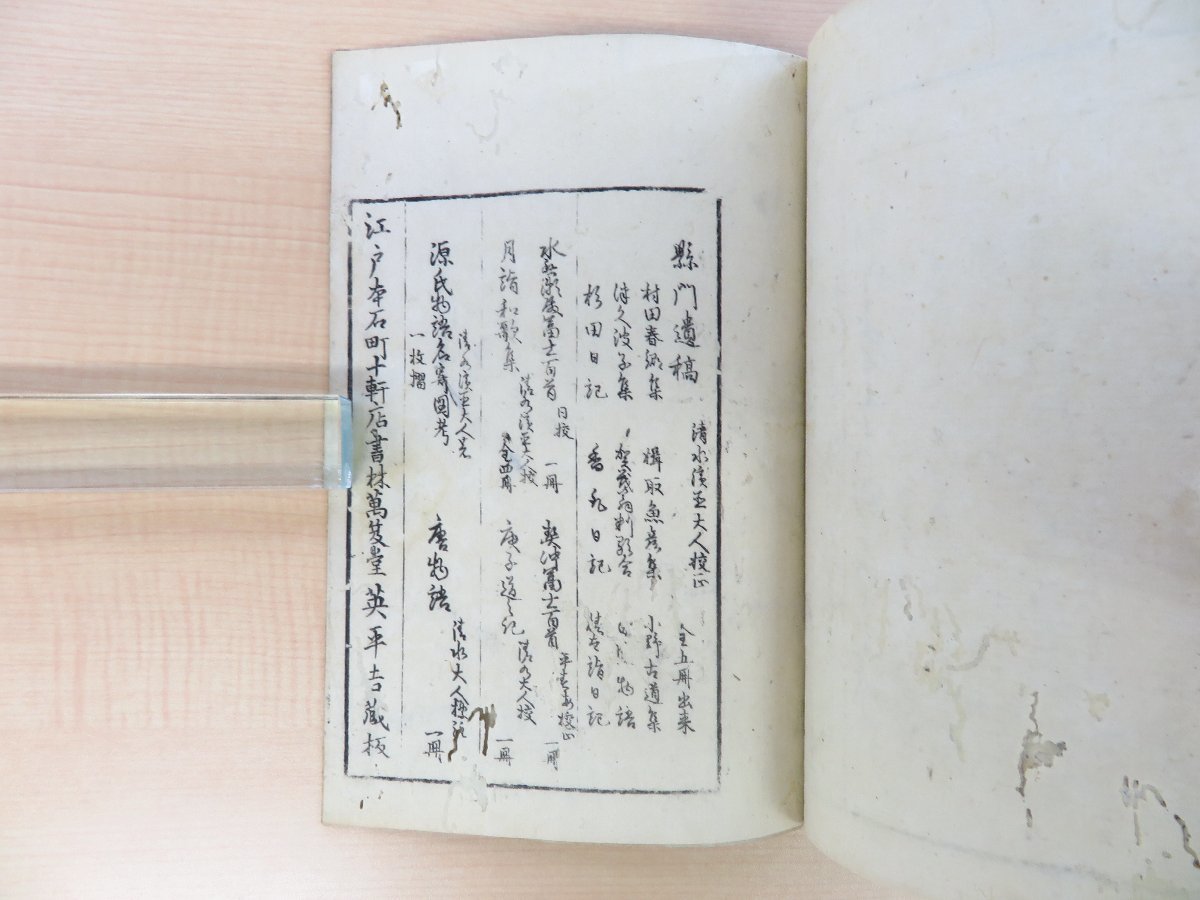 縣門遺稿 清水濱臣大人校正 全五冊出来
村田春郷集 楫取魚彦集 小野古道集
津久波子集 賀茂翁判歌合 物語
杉田日記 香取日記 詣日記
水無瀬殿富士百首 同校 一冊 契冲富士百首 校正 一冊
月詣和歌集 清水濱臣大人校 全四冊 庚子道之記 清水大人校 一冊
源氏物語名寄図考 清水濱臣大人著 一枚摺 唐物語 清水大人標注 一冊
江戸本石町十軒店書林萬笈堂英平吉蔵板